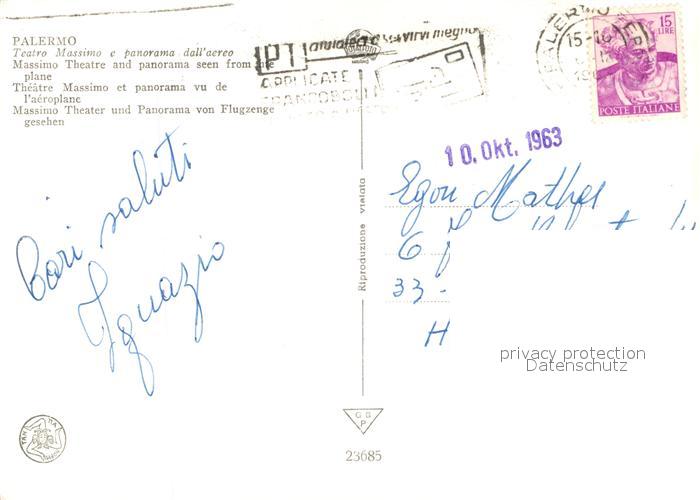 PALERMO
Teatro Massimo e panorama dall'aereo
Massimo Theatre and panorama seen from the
plane
Théâtre Massimo et panorama vu de
l'aéroplane
Massimo Theater und Panorama von Flugzenge
gesehen
PT aiutateci a servirvi meglio
APPLICATE
FRANCOBOLLI
PALERMO
15-16
15
LIRE
POSTE ITALIANE
10. Okt. 1963
Cari saluti
Ignazio
Egon Mathes
6
33-
H
Riproduzione vietata
privacy protection
Datenschutz
GBP
23685